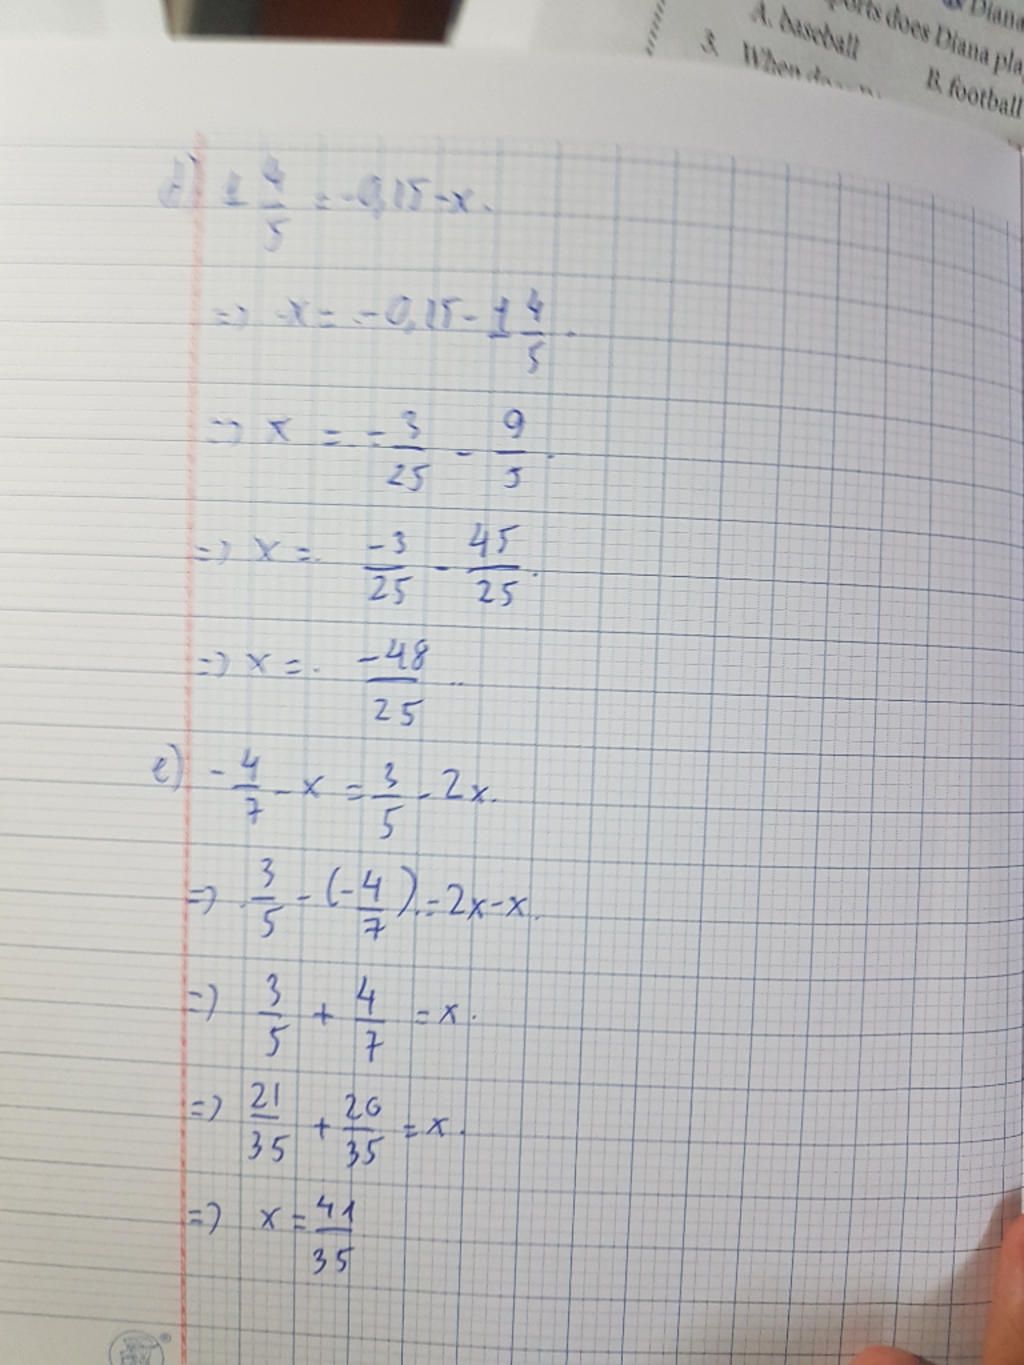 Diana
ports does Diana pla
A. baseball
B. football
3. When do
d) 1 4/5 = -0,15 - x.
=> x = -0,15 - 1 4/5.
=> x = -3/25 - 9/5.
=> x = -3/25 - 45/25.
=> x = -48/25
e) -4/7 - x = 3/5 - 2x.
=> 3/5 - (-4/7) = 2x - x.
=> 3/5 + 4/7 = x.
=> 21/35 + 20/35 = x.
=> x = 41/35